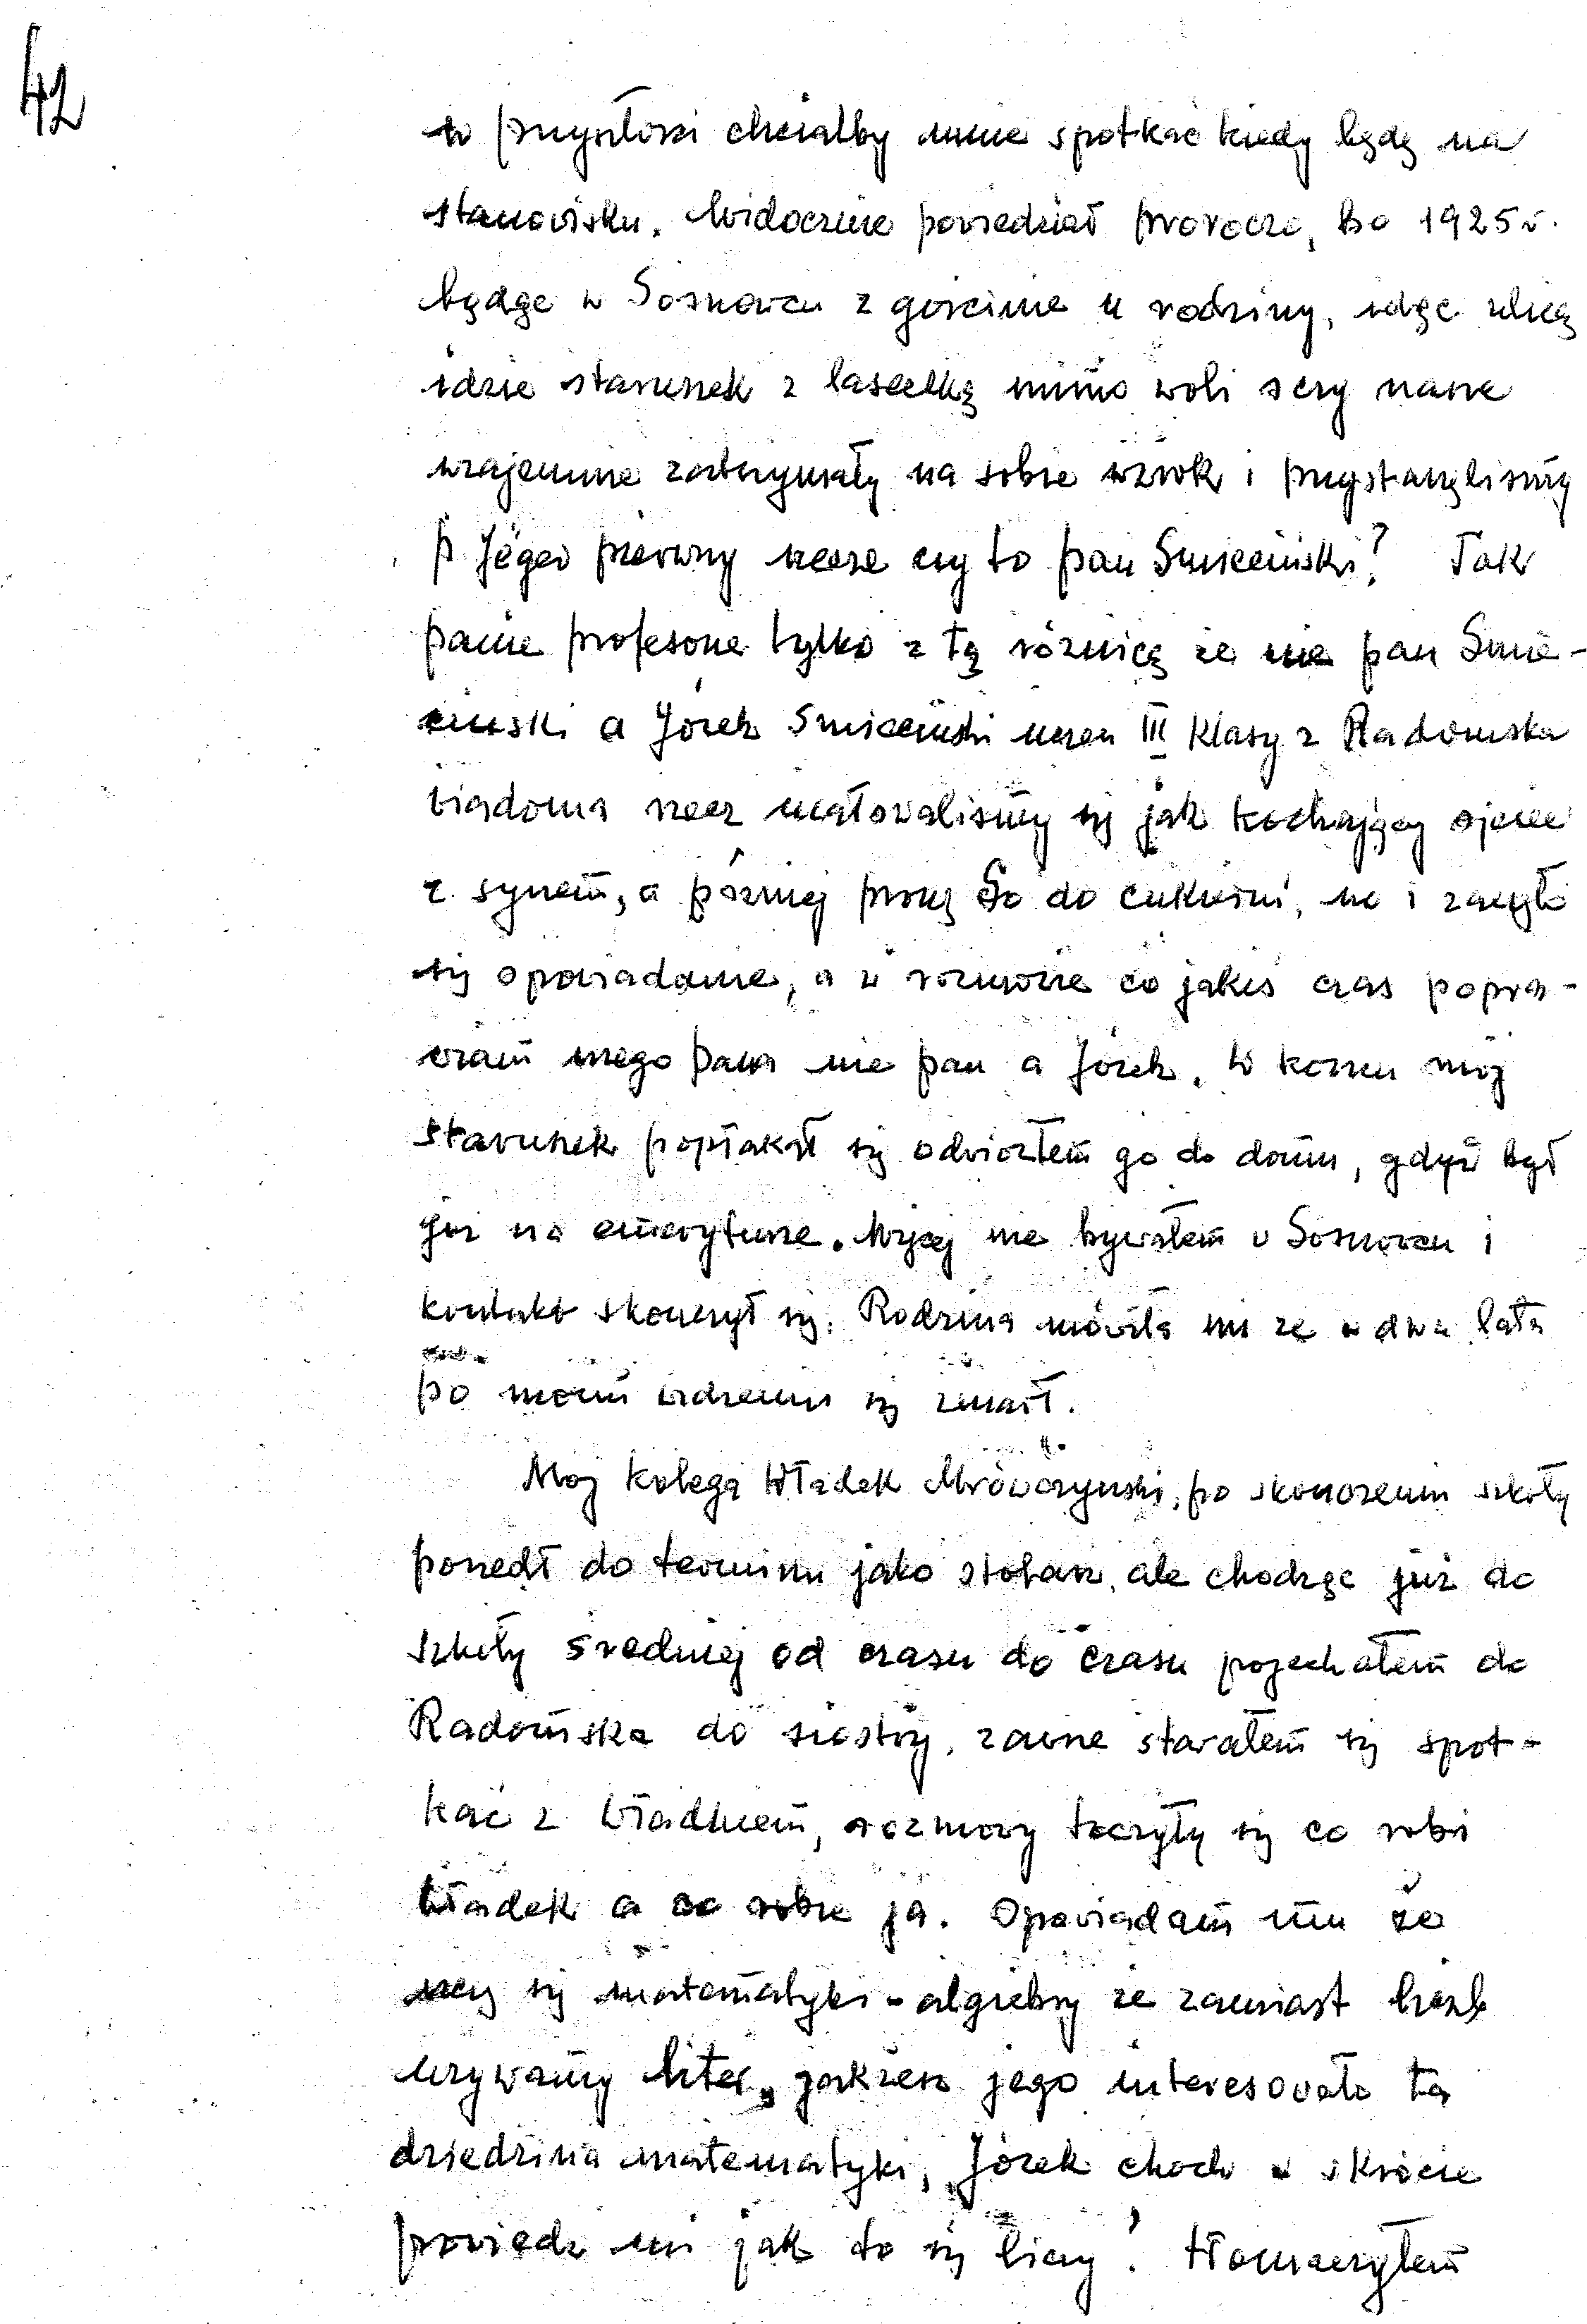 42
w przyszłosci chciałby mnie spotkać kiedy będę na
stanowisku. Widocznie powiedział proroczo, bo 1925 r.
będąc w Sosnowcu z gościnie u rodziny, idąc ulicą
idzie staruszek z laseczką mimo woli oczy nasze
wzajemnie zatrzymały na sobie wzrok i przystanęlismy
p. Jeger pierwszy rzecze czy to pan Smiceinski? Tak
panie profesorze tylko z tą róznicą ze nie pan Smie-
cinski a Józek Smiceinski uczen III klasy z Radomska
wiadoma rzecz ucałowalismy się jak kochający ojciec
z synem, a pózniej proszę Go do cukierni, no i zaczęło
się opowiadanie, a w rozmowie co jakis czas popra-
wiam mego pana nie pan a Józek. W koncu mój
staruszek popłakał się odwiozłem go do domu, gdyż był
juz na emeryturze. Więcej nie bywałem w Sosnowcu i
kontakt skonczył się. Rodzina mówiła mi ze w dwa lata
po moim widzeniu się zmarł.
Moj kolega Władek Mrówczynski, po skonczeniu szkoły
poszedł do terminu jako stolarz, ale chodząc już do
szkoły sredniej od czasu do czasu pojechałem do
Radomska do siostry, zawsze starałem się spot-
kać z Władkiem, rozmowy toczyły się co robi
Władek a co robie ja. Opowiadam mu że
uczę się matematyki - algiebry ze zamiast liczb
uzywamy liter, jakżesz jego interesowała ta
dziedzina matematyki, Józek choch w skrócie
powiedz mi jak to się liczy! Tłomaczyłem